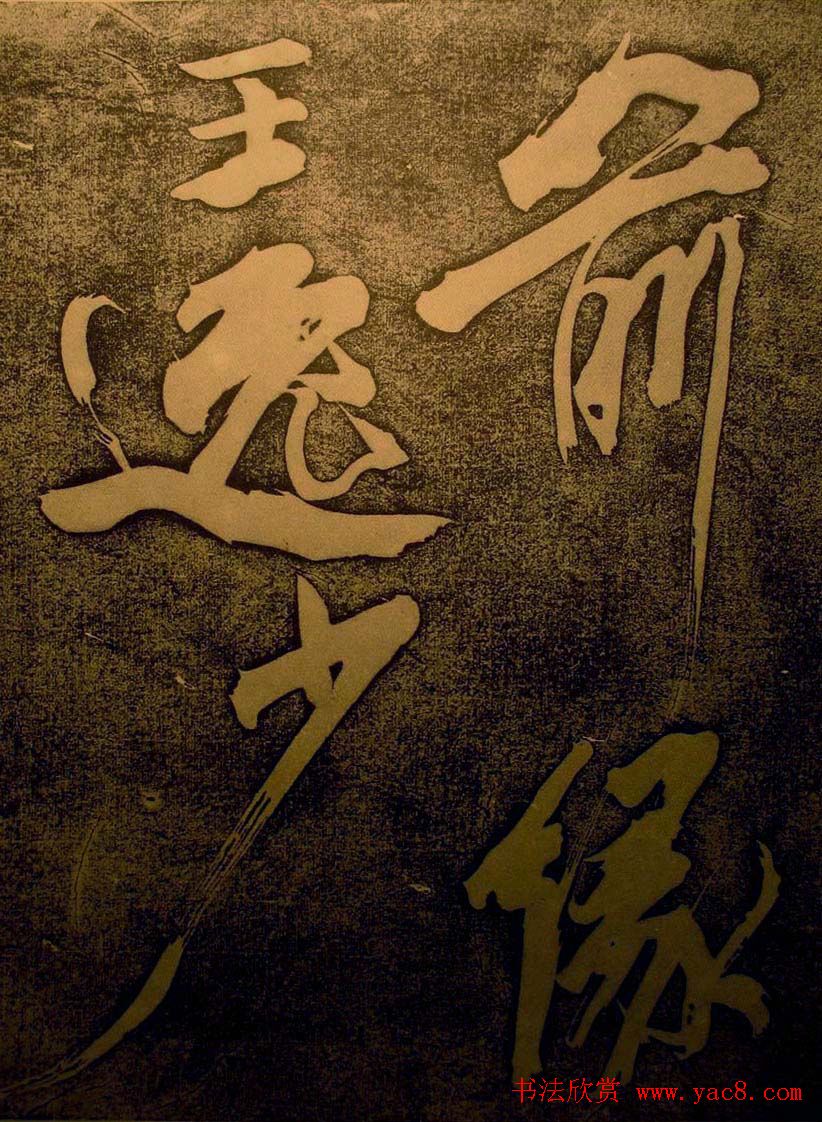 像
王逸少
书法欣赏 www.yac8.com